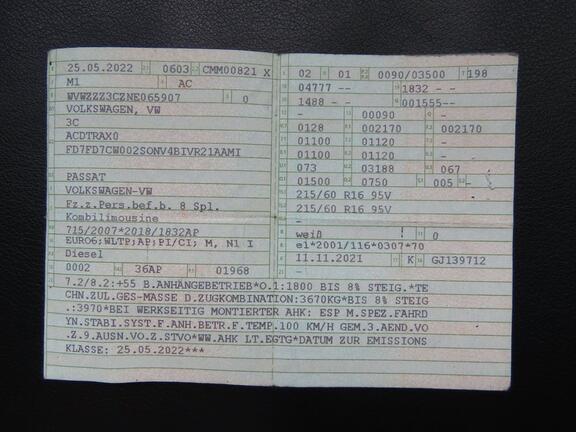 25.05.2022 0603 CMM00821 X
M1 AC
WVWZZZ3CZNE065907 0
VOLKSWAGEN, VW
3C
ACDTRAX0
FD7FD7CW002SONV4BIVR21AAMI
PASSAT
VOLKSWAGEN-VW
Fz.z.Pers.bef.b. 8 Spl.
Kombilimousine
715/2007*2018/1832AP
EURO6;WLTP;AP;PI/CI; M, N1 I
Diesel
0002 36AP 01968
02 01 0090/03500 198
04777 -- 1832 --
1488 -- 001555--
- 00090 -
0128 002170 002170
01100 01120 -
01100 01120 -
073 03188 067
01500 0750 005 -
215/60 R16 95V
215/60 R16 95V
-
weiß 0
e1*2001/116*0307*70
11.11.2021 K GJ139712
-
7.2/8.2:+55 B.ANHÄNGEBETRIEB*O.1:1800 BIS 8% STEIG.*TE
CHN.ZUL.GES-MASSE D.ZUGKOMBINATION:3670KG*BIS 8% STEIG
.:3970*BEI WERKSEITIG MONTIERTER AHK: ESP M.SPEZ.FAHRD
YN.STABI.SYST.F.ANH.BETR.F.TEMP.100 KM/H GEM.3.AEND.VO
.Z.9.AUSN.VO.Z.STVO*WW.AHK LT.EGTG*DATUM ZUR EMISSIONS
KLASSE: 25.05.2022***